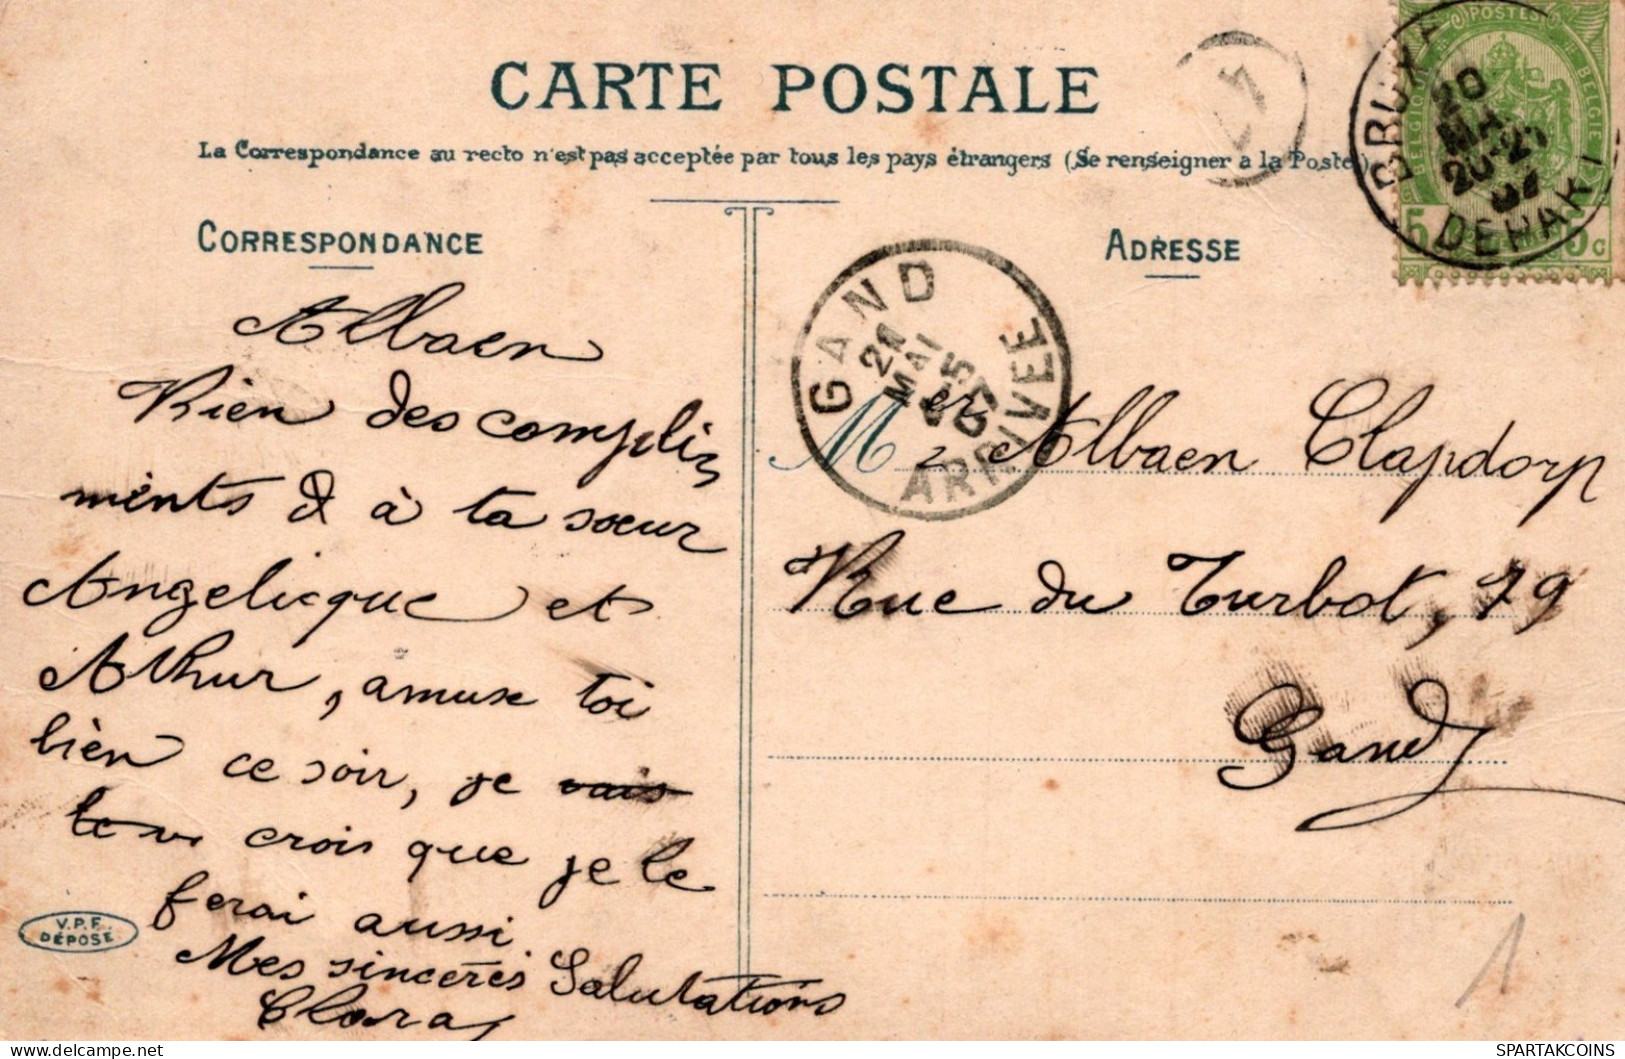 CARTE POSTALE
La Correspondance au recto n'est pas acceptée par tous les pays étrangers (Se renseigner a la Poste)
CORRESPONDANCE
Albaen
Rien des complim
ments & à ta sœur
Angelicque et
Arthur, amuse toi
bien ce soir, je vais
crois que je le
ferai aussi
Mes sincères Salutations
Clara
V.P.F.
DÉPOSÉ
ADRESSE
GAND
21
MAI
5
07
ARRIVEE
M Albaen Clapdorp
Rue du Turbot, 79
Gand
POSTES
BELGIQUE
BELGIE
5
5 c
20
20-21
07
1
SPARTAKCOINS
www.spartakcoins.com